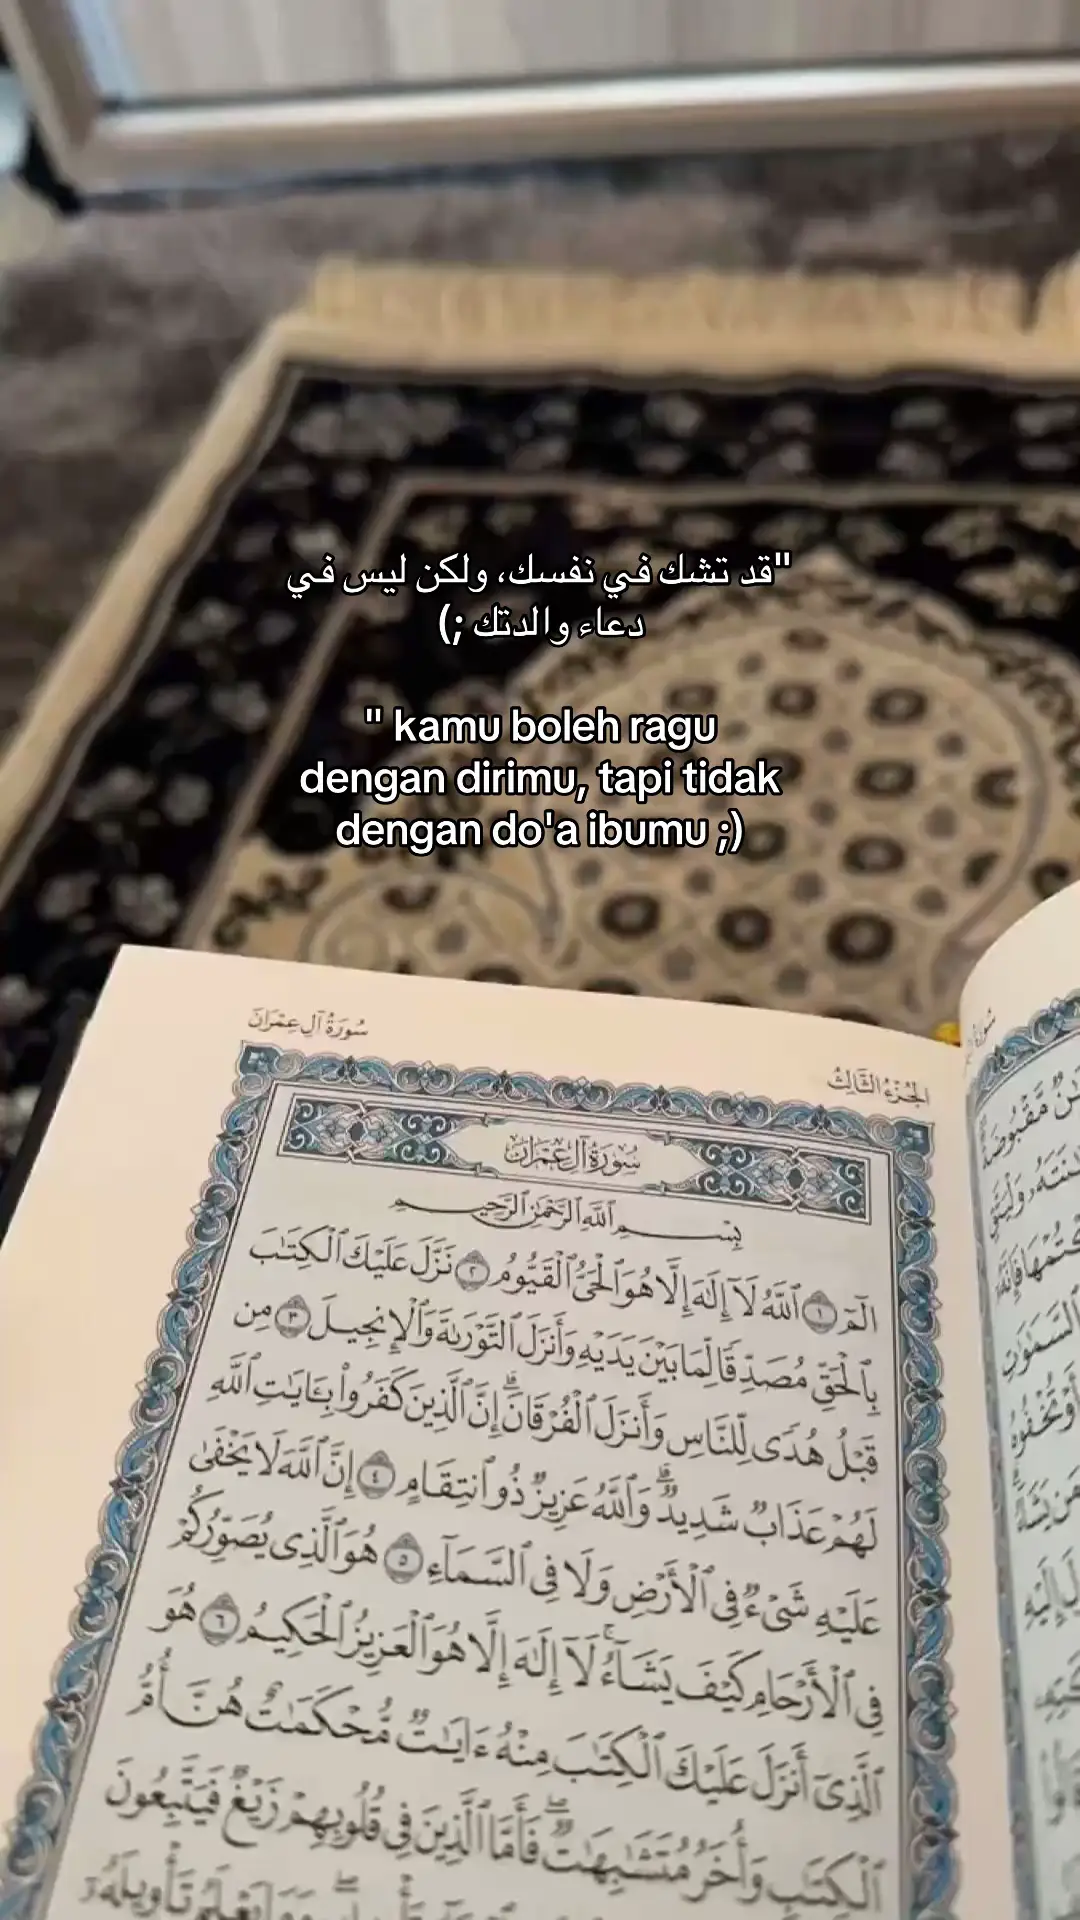 "قد تشك في نفسك، ولكن ليس في
دعاء والدتك ;)
" kamu boleh ragu
dengan dirimu, tapi tidak
dengan do'a ibumu ;)
سُورَةُ آلِ عِمْرَانَ
الجُزْءُ الثَّالِثُ
سُورَةُ آلِ عِمْرَانَ
بِسْمِ ٱللَّهِ ٱلرَّحْمَٰنِ ٱلرَّحِيمِ
الٓمٓ ١ ٱللَّهُ لَآ إِلَٰهَ إِلَّا هُوَ ٱلْحَىُّ ٱلْقَيُّومُ ٢ نَزَّلَ عَلَيْكَ ٱلْكِتَٰبَ
بِٱلْحَقِّ مُصَدِّقًا لِّمَا بَيْنَ يَدَيْهِ وَأَنزَلَ ٱلتَّوْرَىٰةَ وَٱلْإِنجِيلَ ٣ مِن
قَبْلُ هُدًى لِّلنَّاسِ وَأَنزَلَ ٱلْفُرْقَانَ ۗ إِنَّ ٱلَّذِينَ كَفَرُوا۟ بِـَٔايَٰتِ ٱللَّهِ
لَهُمْ عَذَابٌ شَدِيدٌ ۗ وَٱللَّهُ عَزِيزٌ ذُو ٱنتِقَامٍ ٤ إِنَّ ٱللَّهَ لَا يَخْفَىٰ
عَلَيْهِ شَىْءٌ فِى ٱلْأَرْضِ وَلَا فِى ٱلسَّمَآءِ ٥ هُوَ ٱلَّذِى يُصَوِّرُكُمْ
فِى ٱلْأَرْحَامِ كَيْفَ يَشَآءُ ۚ لَآ إِلَٰهَ إِلَّا هُوَ ٱلْعَزِيزُ ٱلْحَكِيمُ ٦ هُوَ
ٱلَّذِىٓ أَنزَلَ عَلَيْكَ ٱلْكِتَٰبَ مِنْهُ ءَايَٰتٌ مُّحْكَمَٰتٌ هُنَّ أُمُّ
ٱلْكِتَٰبِ وَأُخَرُ مُتَشَٰبِهَٰتٌ ۖ فَأَمَّا ٱلَّذِينَ فِى قُلُوبِهِمْ زَيْغٌ فَيَتَّبِعُونَ